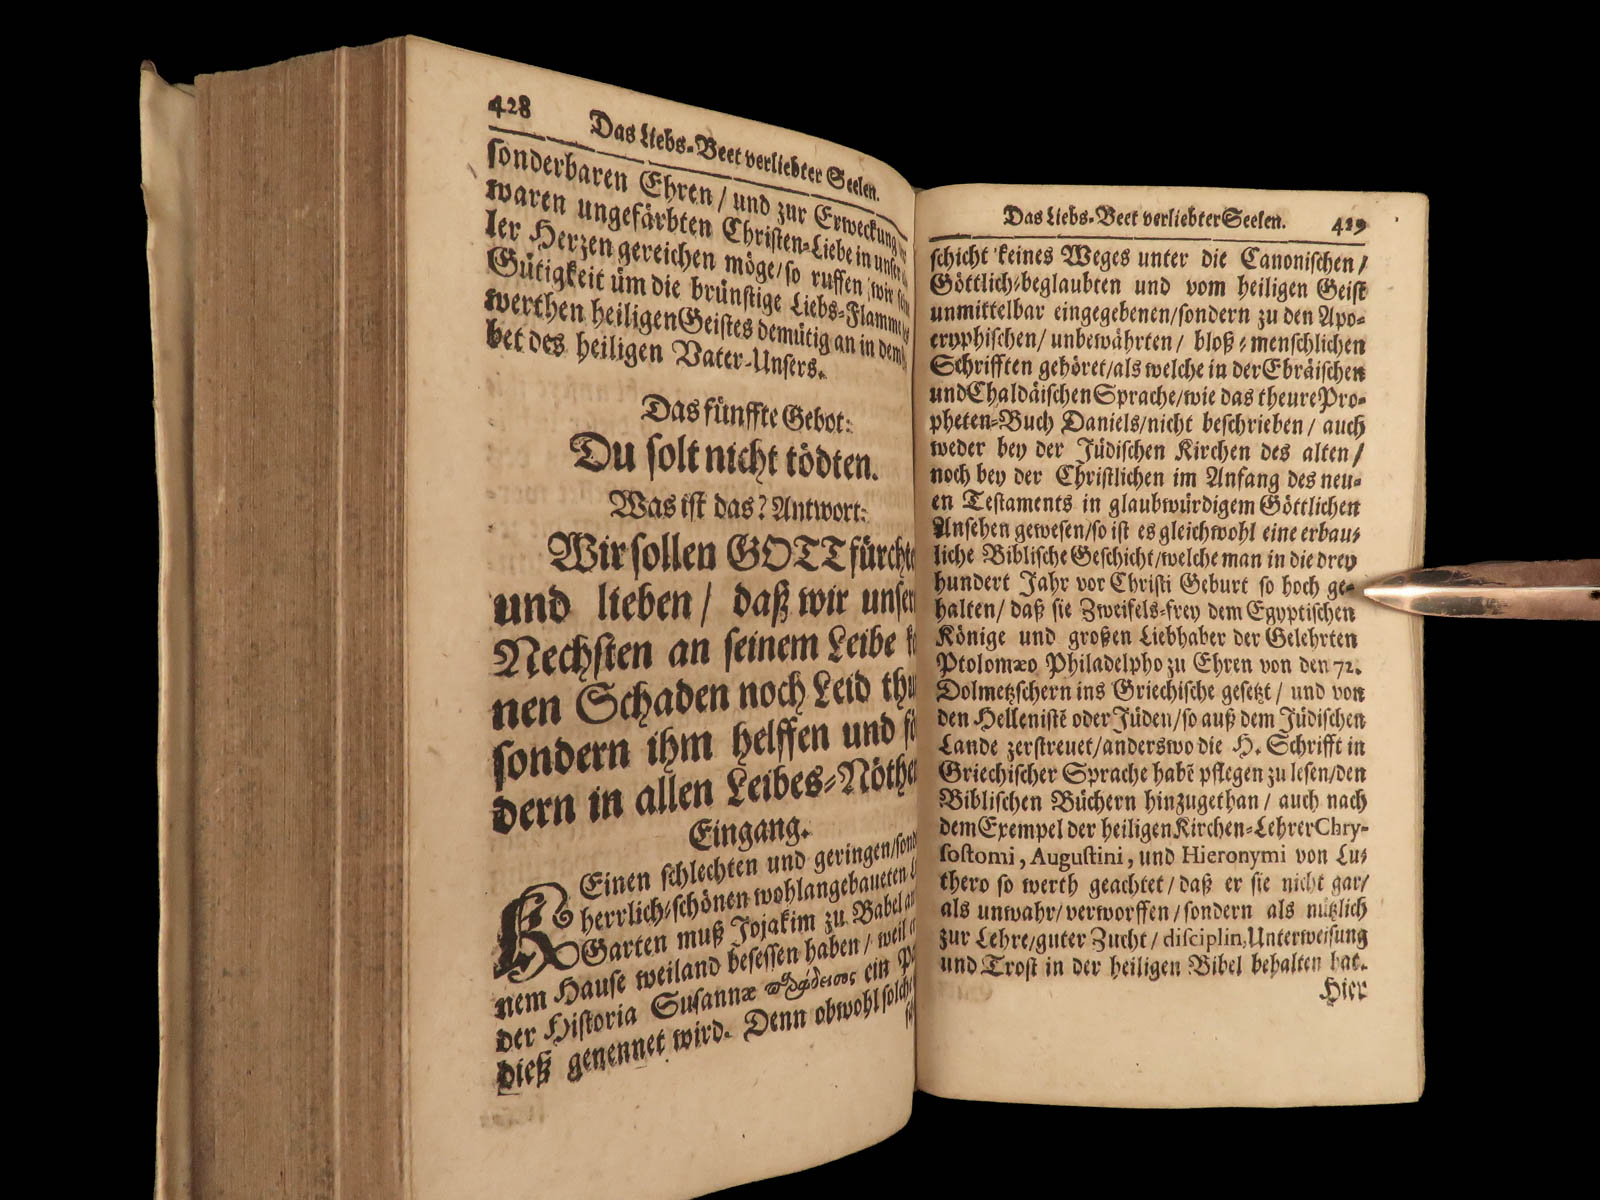 428
Das Liebs-Beet verliebter Seelen.
sonderbaren Ehren / und zur Erweckung
waren ungefärbten Christen-Liebe in unser
ler Herzen gereichen möge/ so ruffen wir
Gütigkeit üm die brünstige Liebs-Flamme
werthen heiligen Geistes demütig an in dem
bet des heiligen Vater-Unsers.
Das fünffte Gebot:
Du solt nicht tödten.
Was ist das? Antwort:
Wir sollen GOTT fürchte
und lieben / daß wir unser
Nechsten an seinem Leibe
nen Schaden noch Leid thu
sondern ihm helffen und
dern in allen Leibes-Nöthe
Eingang.
Einen schlechten und geringen/ son
herrlich-schönen wohlangebaueten
Garten muß Jojakim zu Babel an
nem Hause weiland besessen haben / weil
der Historia Susannæ ein
dieß genennet wird. Denn obwohl solche
Das Liebs-Beet verliebter Seelen.
429
schicht keines Weges unter die Canonischen /
Göttlich-beglaubten und vom heiligen Geist
unmittelbar eingegebenen/ sondern zu den Apo-
cryphischen/ unbewährten/ bloß-menschlichen
Schrifften gehöret/ als welche in der Ebräischen
und Chaldäischen Sprache/ wie das theure Pro-
pheten-Buch Daniels/ nicht beschrieben/ auch
weder bey der Jüdischen Kirchen des alten/
noch bey der Christlichen im Anfang des neu-
en Testaments in glaubwürdigem Göttlichen
Ansehen gewesen/ so ist es gleichwohl eine erbau-
liche Biblische Geschicht/ welche man in die drey
hundert Jahr vor Christi Geburt so hoch ge-
halten/ daß sie Zweifels-frey dem Egyptischen
Könige und großen Liebhaber der Gelehrten
Ptolomæo Philadelpho zu Ehren von den 72.
Dolmetzschern ins Griechische gesetzt / und von
den Hellenistē oder Jüden/ so auß dem Jüdischen
Lande zerstreuet/ anderswo die H. Schrifft in
Griechischer Sprache habē pflegen zu lesen/ den
Biblischen Büchern hinzugethan / auch nach
dem Exempel der heiligen Kirchen-Lehrer Chry-
sostomi, Augustini, und Hieronymi von Lu-
thero so werth geachtet / daß er sie nicht gar/
als unwahr/ verworffen / sondern als nützlich
zur Lehre/ guter Zucht / disciplin, Unterweisung
und Trost in der heiligen Bibel behalten hat.
Hier